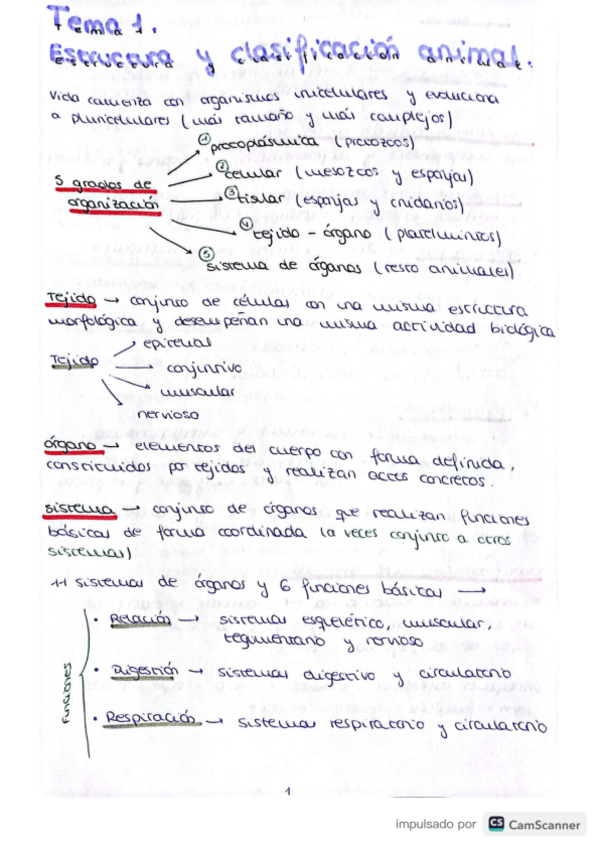 Tema 1.
Estructura y clasificación animal.
Vida comienza con organismos unicelulares y evoluciona
a pluricelulares (más tamaño y más complejos)
5 grados de organización
1 protoplásmica (protozoos)
2 celular (mesozoos y esponjas)
3 tisular (esponjas y cnidarios)
4 tejido - órgano (platelmintos)
5 sistema de órganos (resto animales)
Tejido → conjunto de células con una misma estructura
morfológica y desempeñan una misma actividad biológica
Tejido
epitelial
conjuntivo
muscular
nervioso
órgano → elementos del cuerpo con forma definida,
constituidos por tejidos y realizan actos concretos.
sistema → conjunto de órganos que realizan funciones
básicas de forma coordinada (a veces conjunto a otros
sistemas)
11 sistemas de órganos y 6 funciones básicas →
Funciones
• Relación → sistemas esquelético, muscular,
tegumentario y nervioso
• Digestión → sistemas digestivo y circulatorio
• Respiración → sistema respiratorio y circulatorio
1
impulsado por CS CamScanner